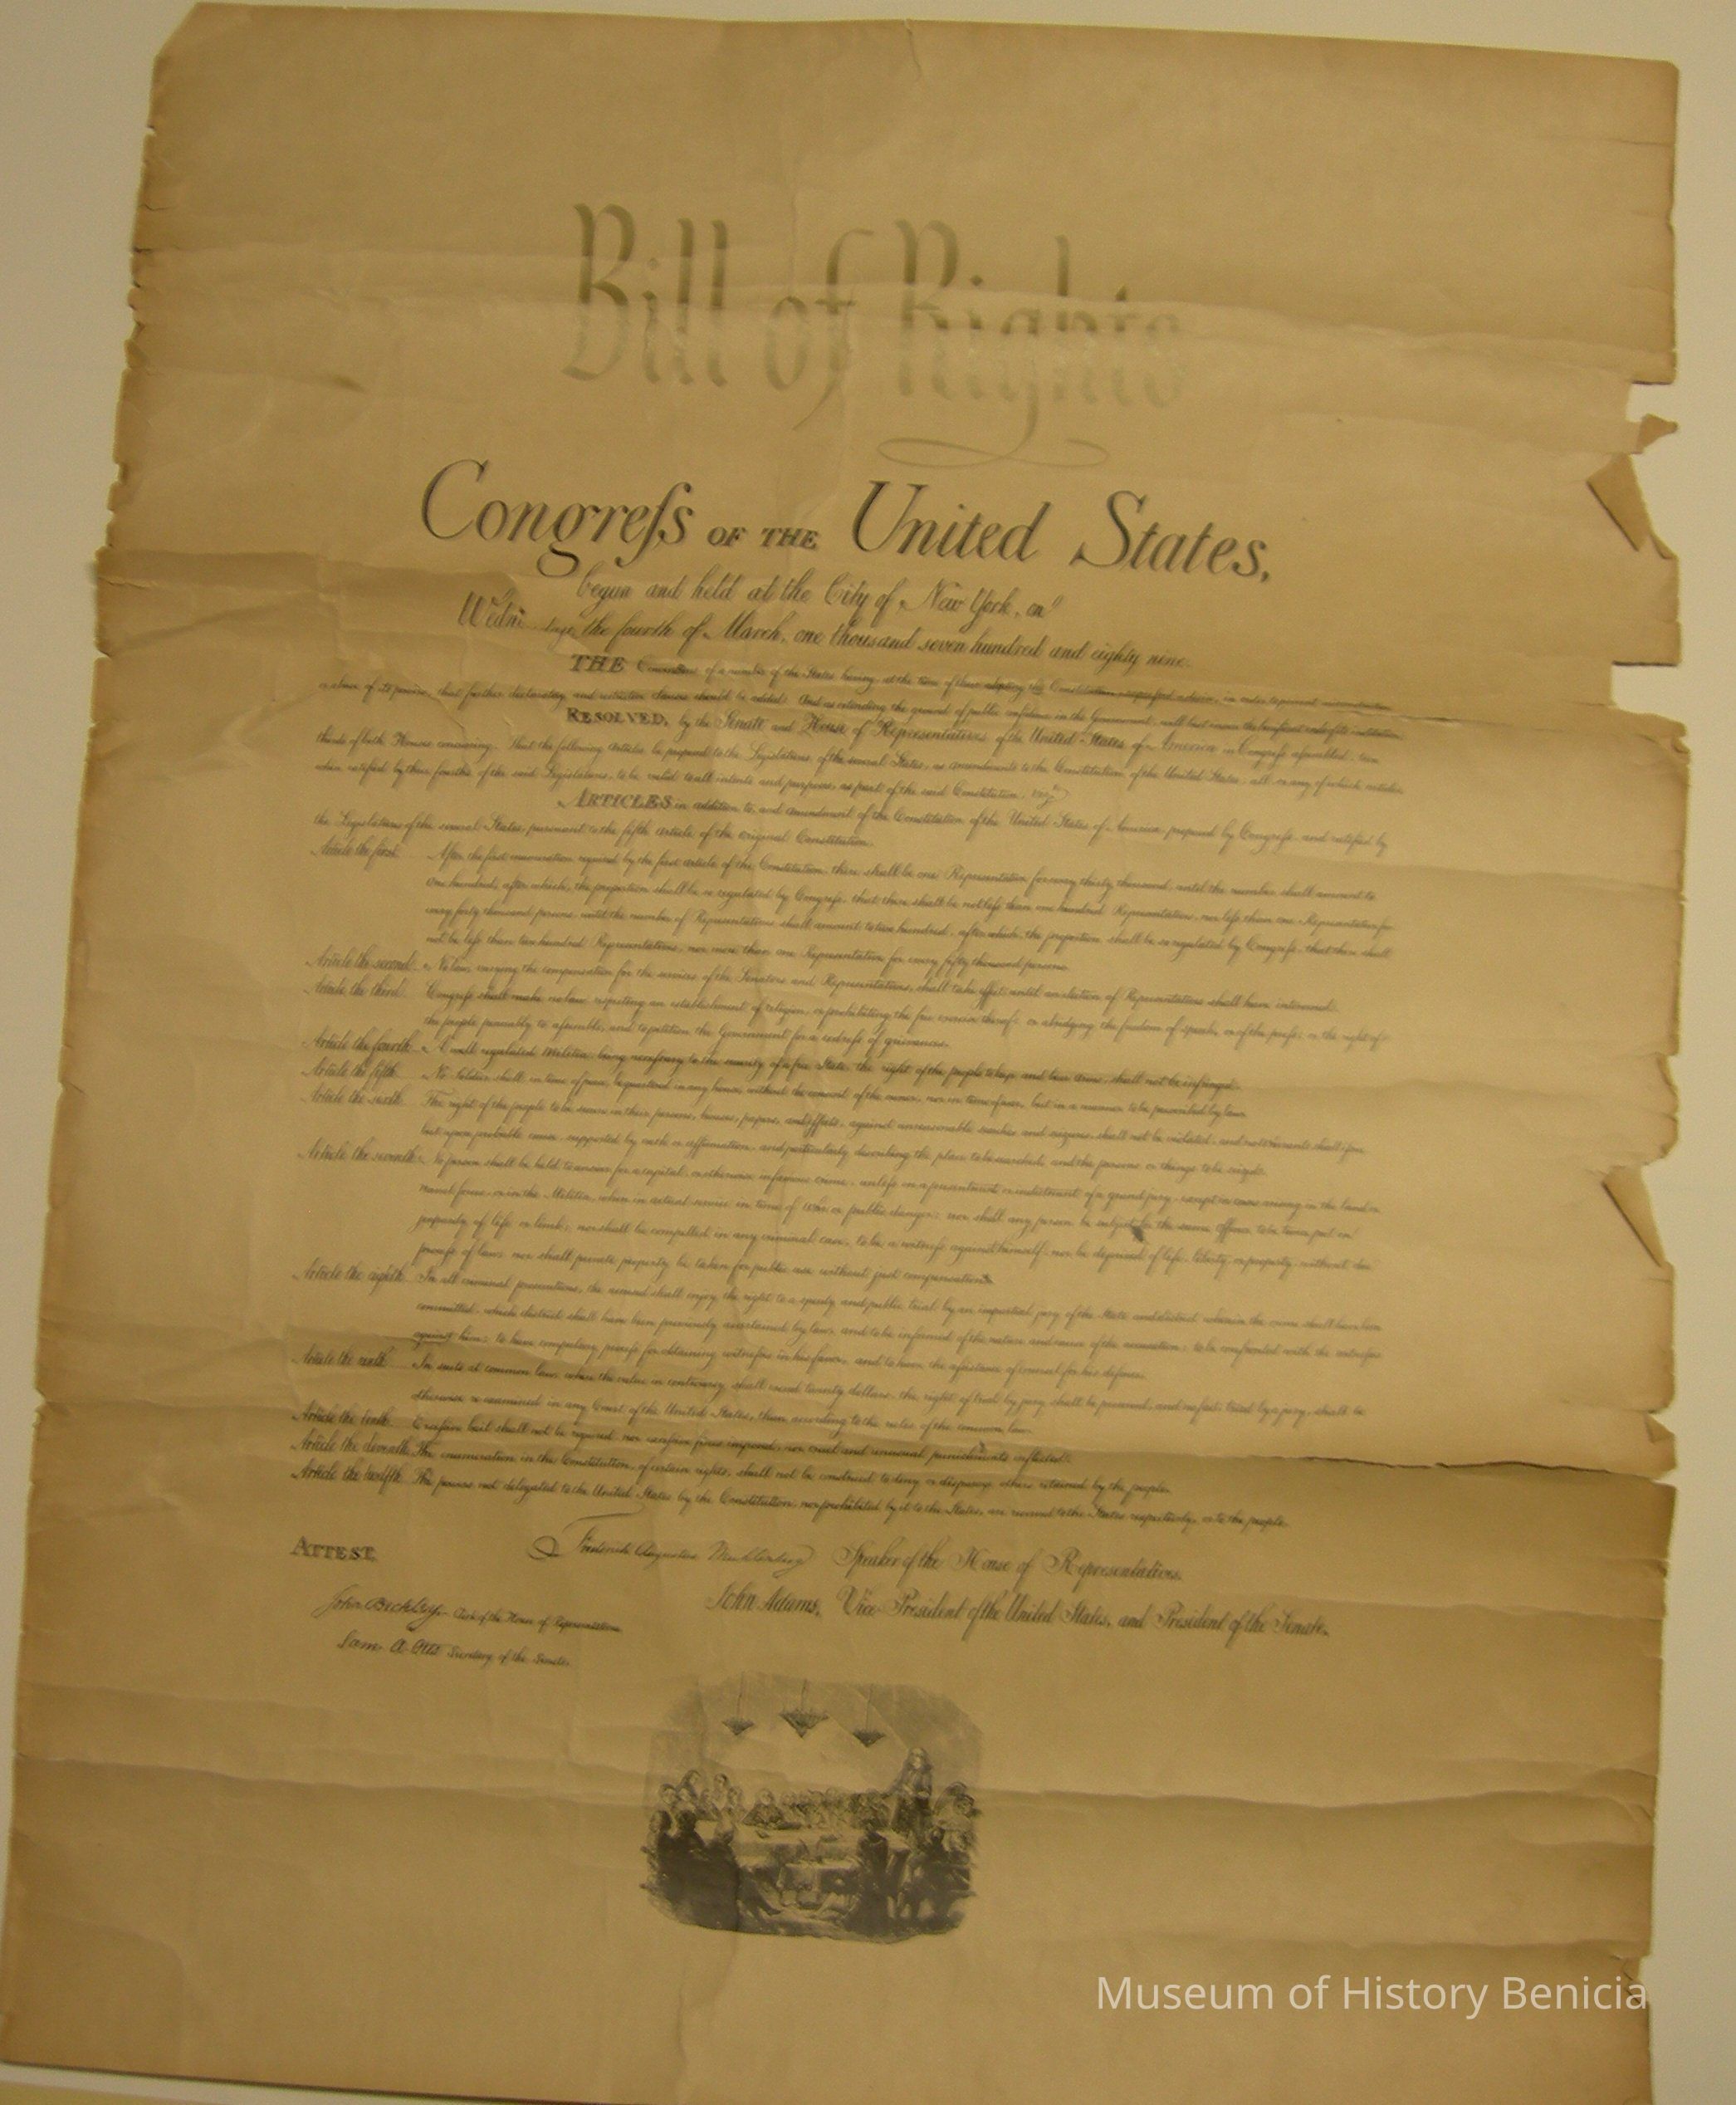 Bill of Rights
Congreſs OF THE United States,
begun and held at the City of New York, on
Wedn day the fourth of March, one thousand seven hundred and eighty nine.
THE Conventions of a number of the States having, at the time of their adopting the Constitution expreſsed a desire, in order to prevent misconstruction
or abuse of its powers, that further declaratory and restrictive clauses should be added: And as extending the ground of public confidence in the Government, will best ensure the beneficent ends of its institution
RESOLVED, by the Senate and House of Representatives of the United States of America in Congreſs aſsembled, two
thirds of both Houses concurring, that the following Articles be proposed to the Legislatures of the several States, as amendments to the Constitution of the United States, all or any of which articles,
when ratified by three fourths of the said Legislatures, to be valid to all intents and purposes, as part of the said Constitution.
ARTICLES in addition to, and amendment of the Constitution of the United States of America, proposed by Congreſs, and ratified by
the Legislatures of the several States, pursuant to the fifth Article of the original Constitution.
Article the first. After the first enumeration required by the first article of the Constitution, there shall be one Representative for every thirty thousand, until the number shall amount to
one hundred, after which, the proportion shall be so regulated by Congreſs, that there shall be not leſs than one hundred Representatives, nor leſs than one Representative for
every forty thousand persons, until the number of Representatives shall amount to two hundred, after which, the proportion shall be so regulated by Congreſs, that there shall
not be leſs than two hundred Representatives, nor more than one Representative for every fifty thousand persons.
Article the second. No law, varying the compensation for the services of the Senators and Representatives, shall take effect, until an election of Representatives shall have intervened.
Article the third. Congreſs shall make no law respecting an establishment of religion, or prohibiting the free exercise thereof; or abridging the freedom of speech, or of the preſs; or the right of
the people peaceably to aſsemble, and to petition the Government for a redreſs of grievances.
Article the fourth. A well regulated Militia, being neceſsary to the security of a free State, the right of the people to keep and bear arms, shall not be infringed.
Article the fifth. No Soldier shall in time of peace, be quartered in any house, without the consent of the owner, nor in time of war, but in a manner to be prescribed by law.
Article the sixth. The right of the people to be secure in their persons, houses, papers, and effects, against unreasonable searches and seizures, shall not be violated, and no warrants shall iſsue,
but upon probable cause, supported by oath or affirmation, and particularly describing the place to be searched, and the persons or things to be seized.
Article the seventh. No person shall be held to answer for a capital, or otherwise infamous crime, unleſs on a presentment or indictment of a grand jury, except in cases arising in the land or
naval forces, or in the Militia, when in actual service in time of War or public danger; nor shall any person be subject for the same offence to be twice put in
jeopardy of life or limb; nor shall be compelled in any criminal case, to be a witneſs against himself, nor be deprived of life, liberty, or property, without due
proceſs of law; nor shall private property be taken for public use without just compensation.
Article the eighth. In all criminal prosecutions, the accused shall enjoy the right to a speedy and public trial by an impartial jury of the State and district wherein the crime shall have been
committed, which district shall have been previously ascertained by law, and to be informed of the nature and cause of the accusation; to be confronted with the witneſses
against him; to have compulsory proceſs for obtaining witneſses in his favor, and to have the aſsistance of counsel for his defence.
Article the ninth. In suits at common law, where the value in controversy shall exceed twenty dollars, the right of trial by jury shall be preserved, and no fact, tried by a jury, shall be
otherwise re-examined in any Court of the United States, than according to the rules of the common law.
Article the tenth. Exceſsive bail shall not be required, nor exceſsive fines imposed, nor cruel and unusual punishments inflicted.
Article the eleventh. The enumeration in the Constitution, of certain rights, shall not be construed to deny or disparage others retained by the people.
Article the twelfth. The powers not delegated to the United States by the Constitution, nor prohibited by it to the States, are reserved to the States respectively, or to the people.
ATTEST,
Frederick Augustus Muhlenberg Speaker of the House of Representatives.
John Adams, Vice-President of the United States, and President of the Senate.
John Beckley, Clerk of the House of Representatives.
Sam. A. Otis Secretary of the Senate.
Museum of History Benicia